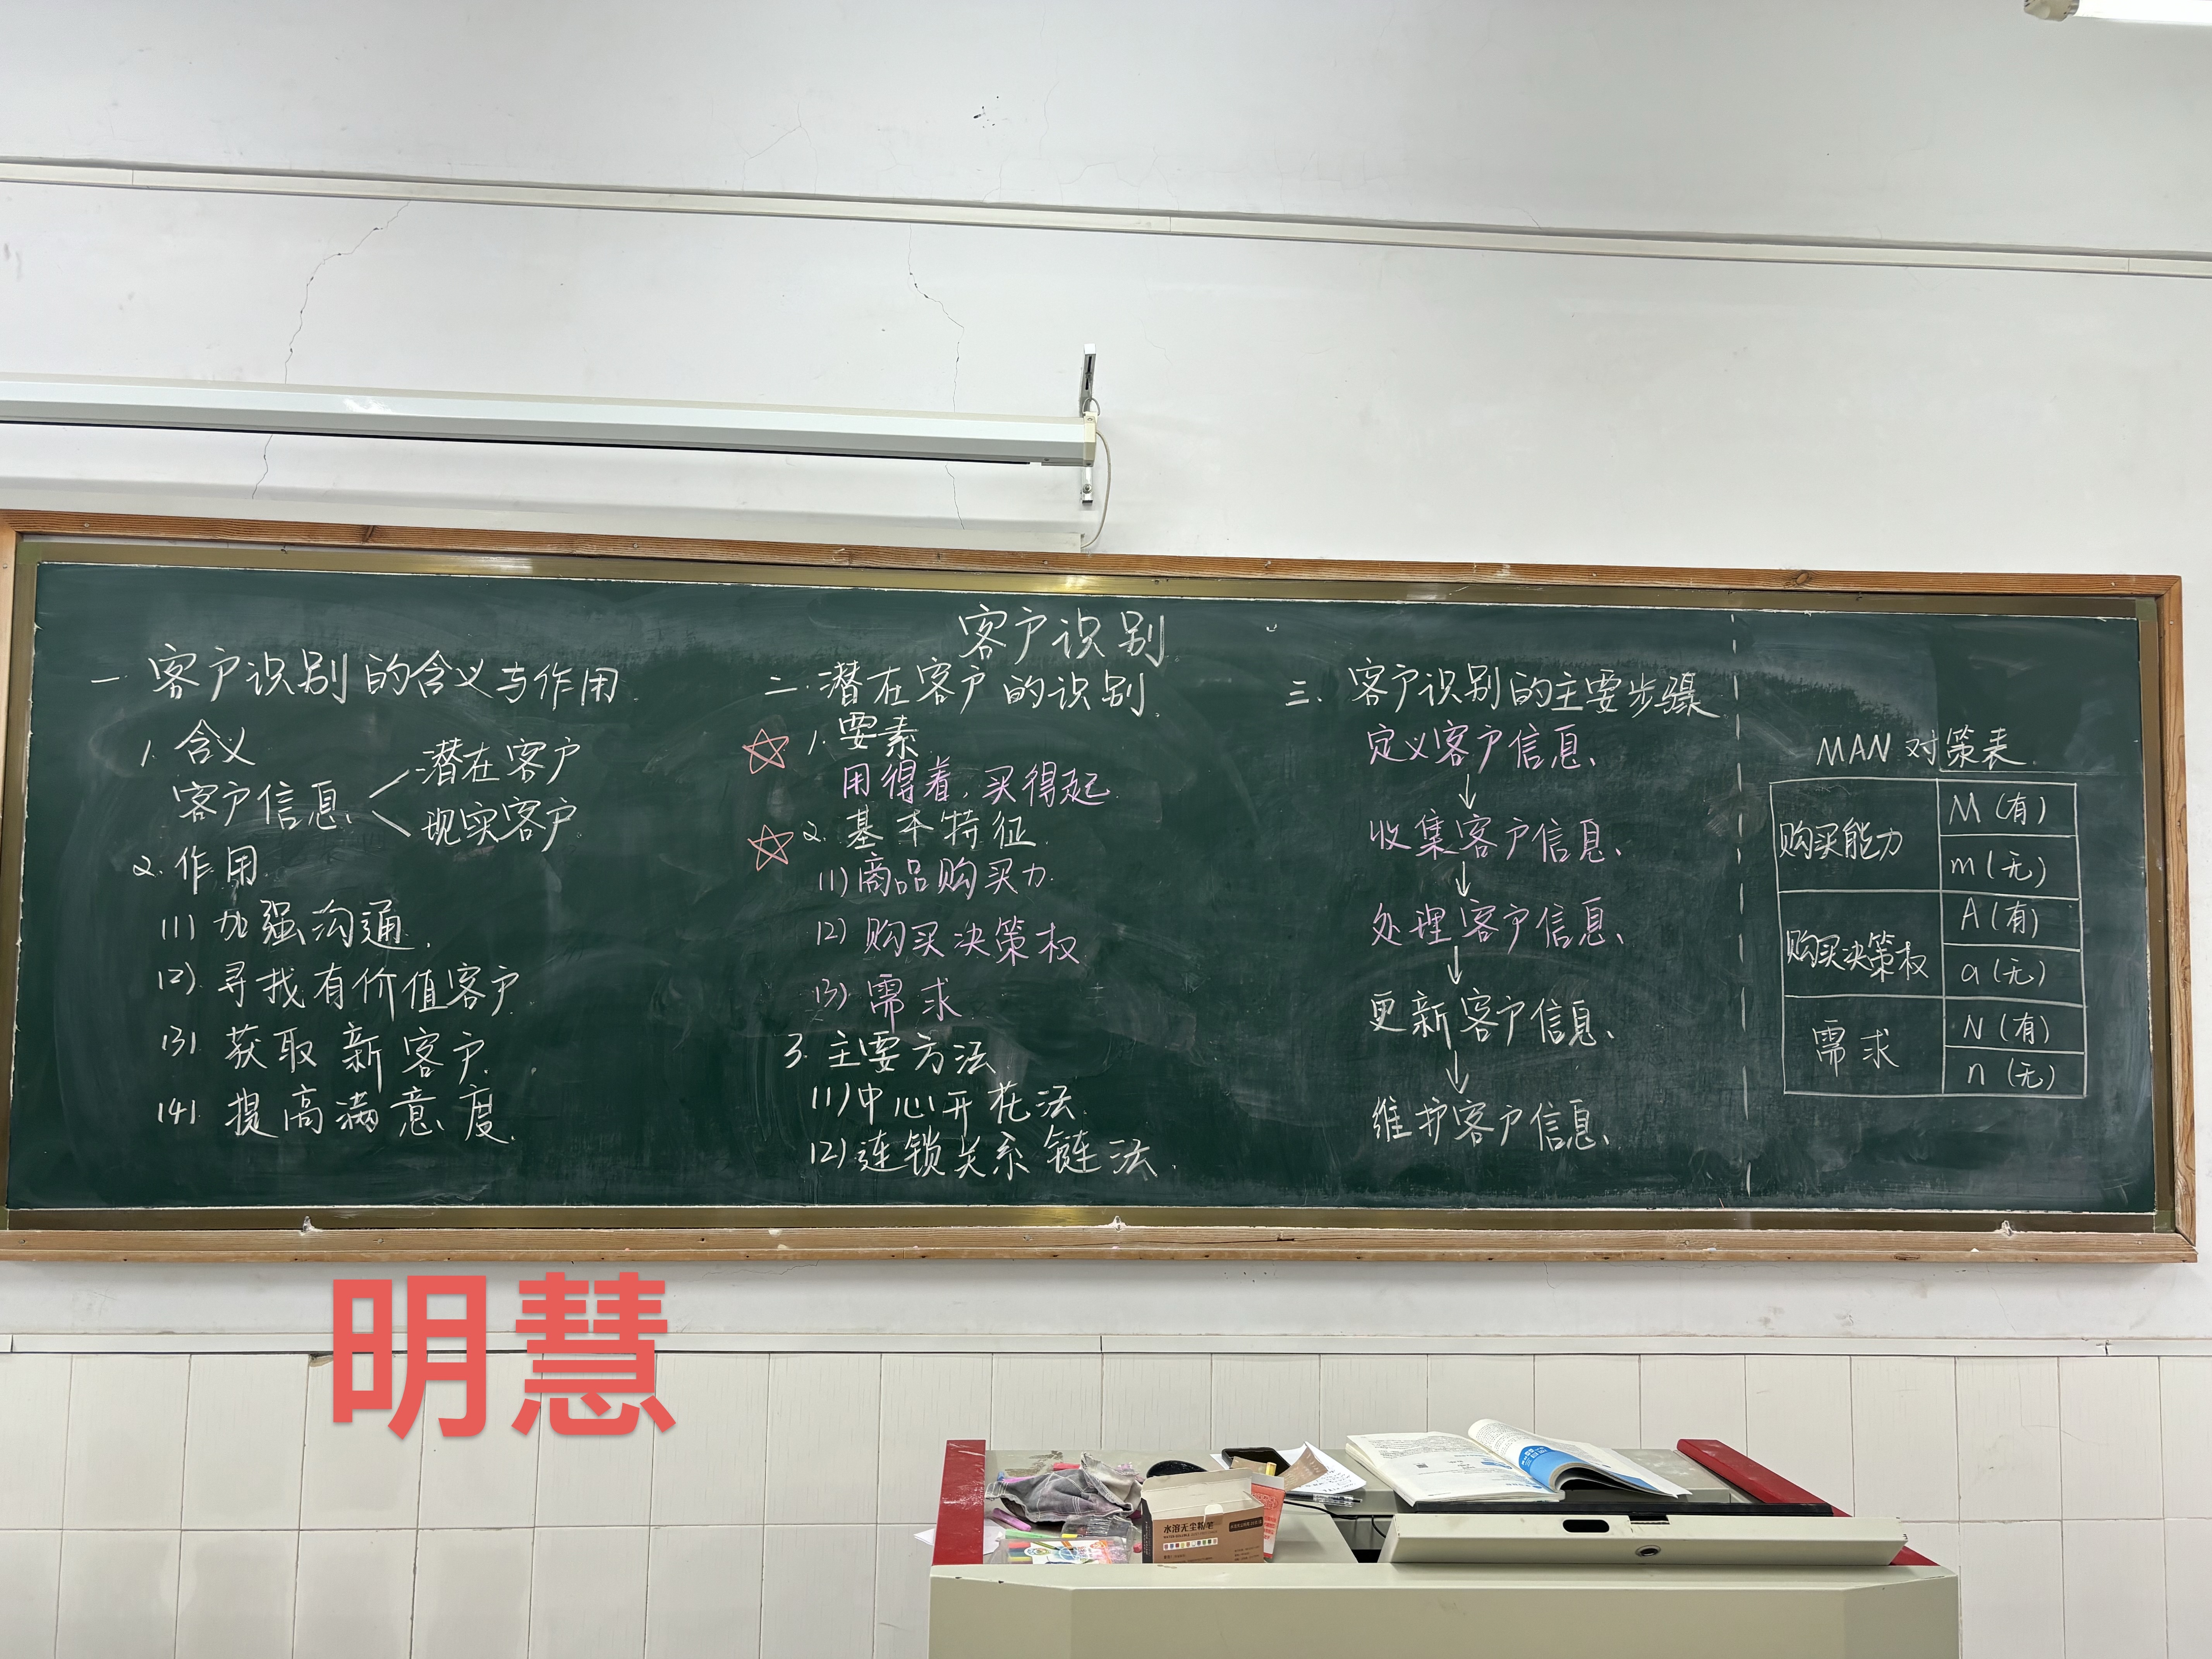 客户识别
一. 客户识别的含义与作用
1. 含义
客户信息
潜在客户
现实客户
2. 作用
(1) 加强沟通.
(2). 寻找有价值客户.
(3). 获取新客户.
(4). 提高满意度.
二. 潜在客户的识别.
1. 要素.
用得着, 买得起.
2. 基本特征.
(1) 商品购买力.
(2) 购买决策权
(3). 需求
3. 主要方法
(1) 中心开花法.
(2) 连锁关系链法.
三. 客户识别的主要步骤
定义客户信息
↓
收集客户信息
↓
处理客户信息
↓
更新客户信息
↓
维护客户信息
MAN 对策表.
购买能力
M (有)
m (无)
购买决策权
A (有)
a (无)
需求
N (有)
n (无)
明慧
水溶无尘粉笔